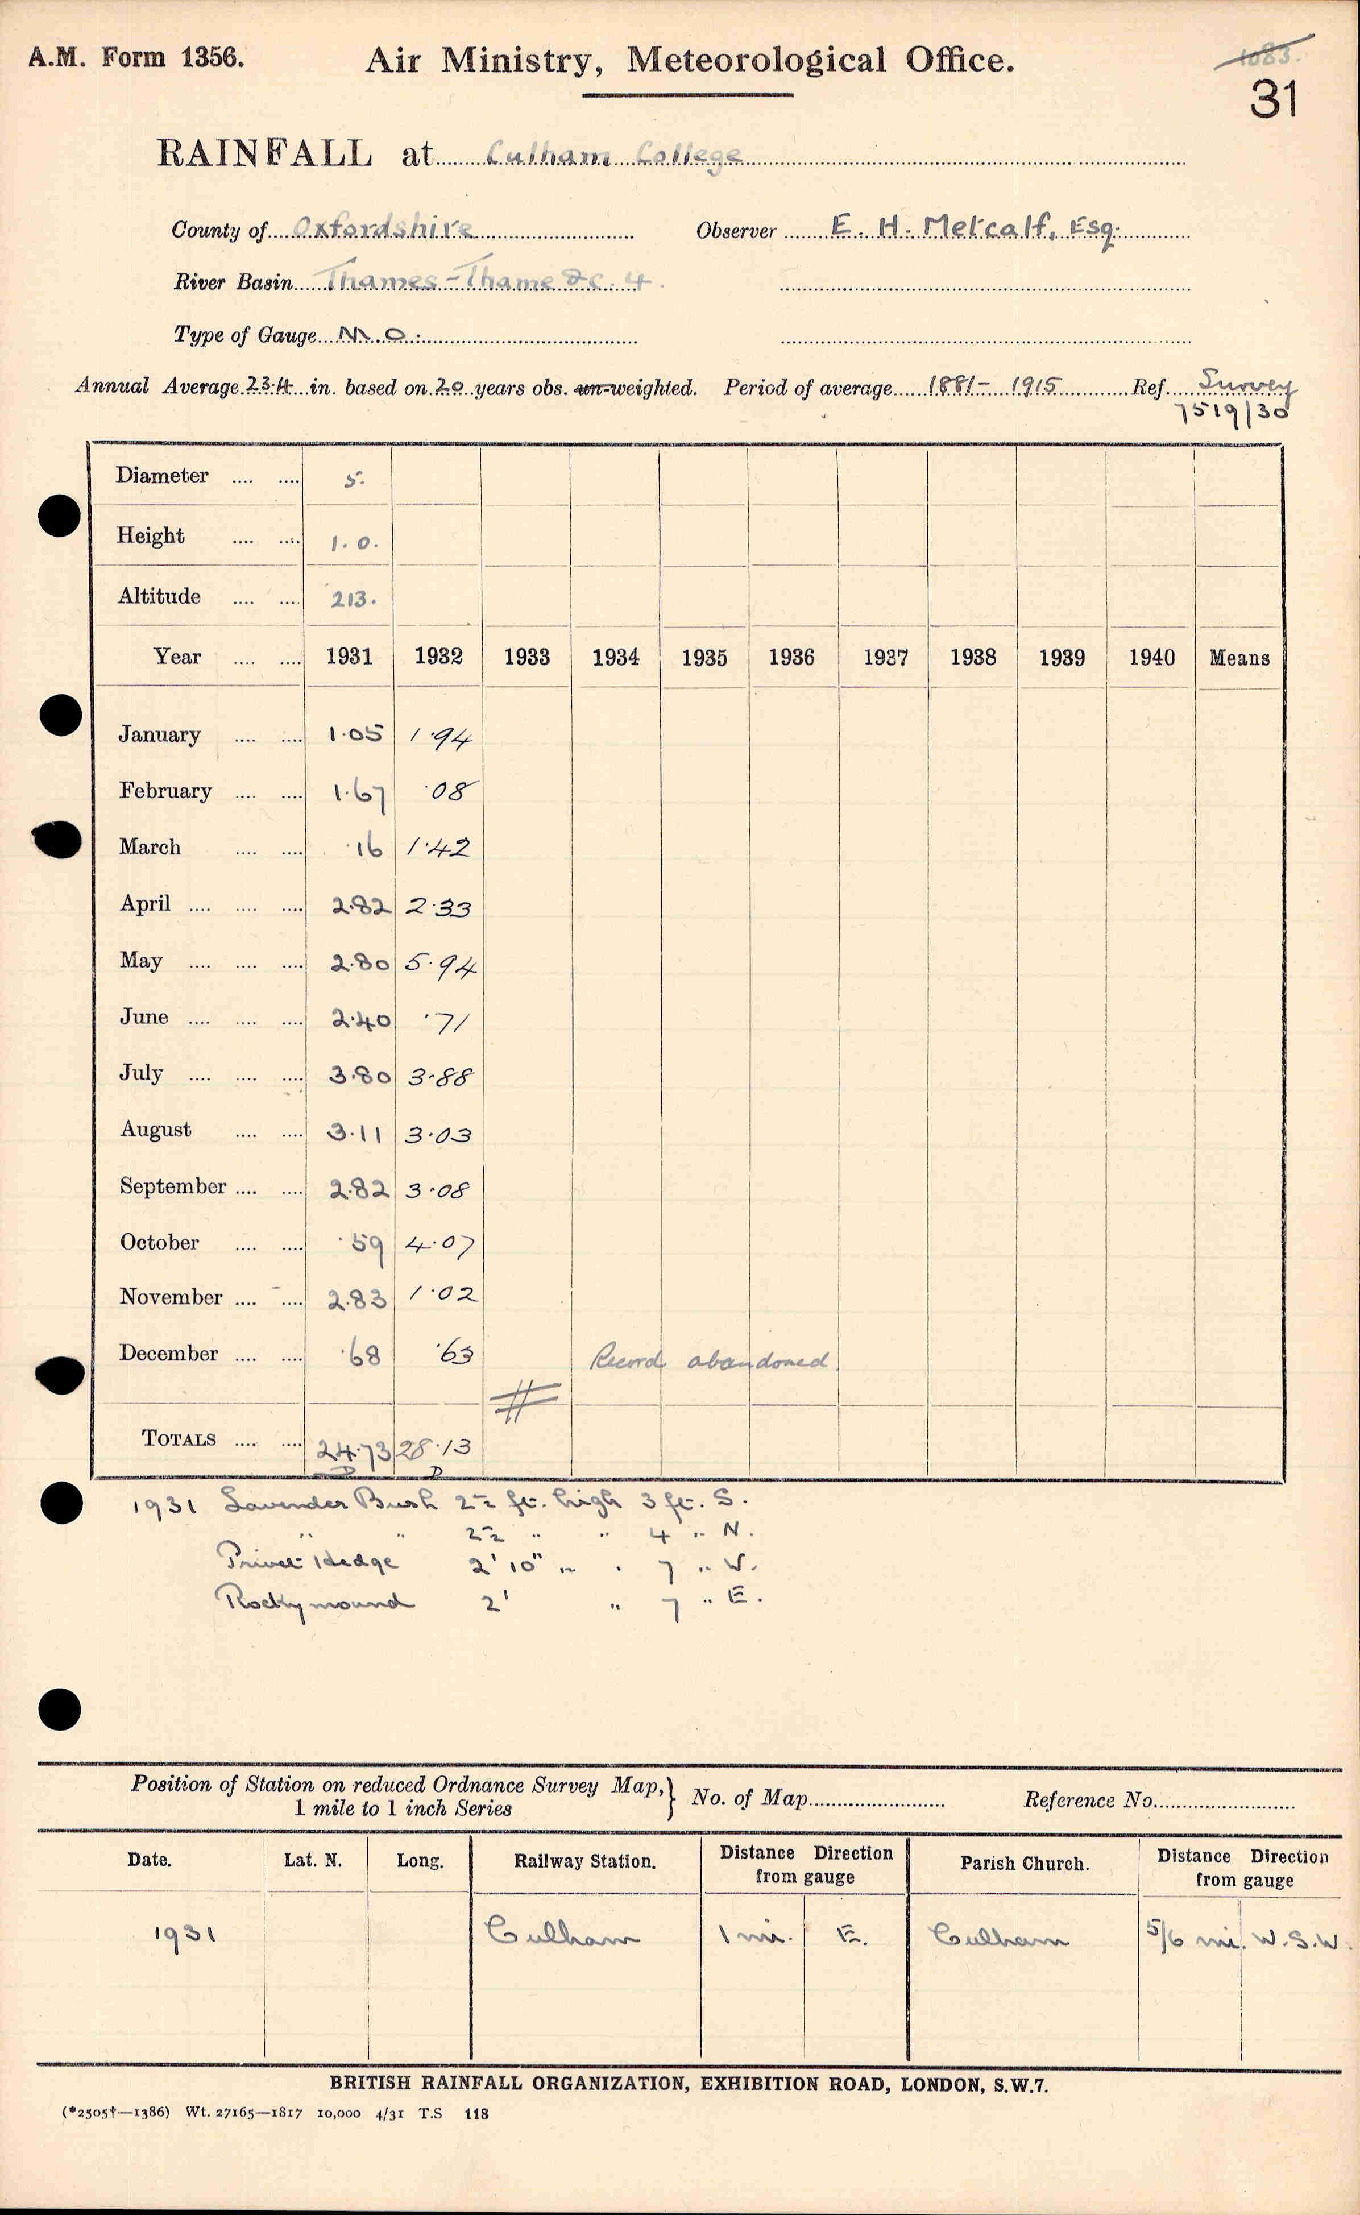 A.M. Form 1356. Air Ministry, Meteorological Office. 1083.
31
RAINFALL at Culham College
County of Oxfordshire Observer E. H. Metcalf, Esq.
River Basin Thames-Thame &c. 4.
Type of Gauge M.O.
Annual Average 23.4 in. based on 20 years obs. un-weighted. Period of average 1881-1915 Ref. Survey
7519/30
Diameter .... .... 5.
Height .... .... 1.0.
Altitude .... .... 213.
Year .... .... 1931 1932 1933 1934 1935 1936 1937 1938 1939 1940 Means
January .... .... 1.05 1.94
February .... .... 1.67 .08
March .... .... .16 1.42
April .... .... .... 2.82 2.33
May .... .... .... 2.80 5.94
June .... .... .... 2.40 .71
July .... .... .... 3.80 3.88
August .... .... 3.11 3.03
September .... .... 2.82 3.08
October .... .... .59 4.07
November .... .... 2.83 1.02
December .... .... .68 .63 Record abandoned.
TOTALS .... .... 24.73 28.13
D D
1931 Lavender Bush 2½ ft. high 3 ft. S.
" " 2½ " " 4 " N.
Privet Hedge 2' 10" " " 7 " W.
Rocky mound 2' " 7 " E.
Position of Station on reduced Ordnance Survey Map,} No. of Map Reference No.
1 mile to 1 inch Series
Date. Lat. N. Long. Railway Station. Distance Direction from gauge Parish Church. Distance Direction from gauge
1931 Culham 1 mi. E. Culham 5/6 mi. W.S.W.
BRITISH RAINFALL ORGANIZATION, EXHIBITION ROAD, LONDON, S.W.7.
(*2505†—1386) Wt. 27165—1817 10,000 4/31 T.S 118